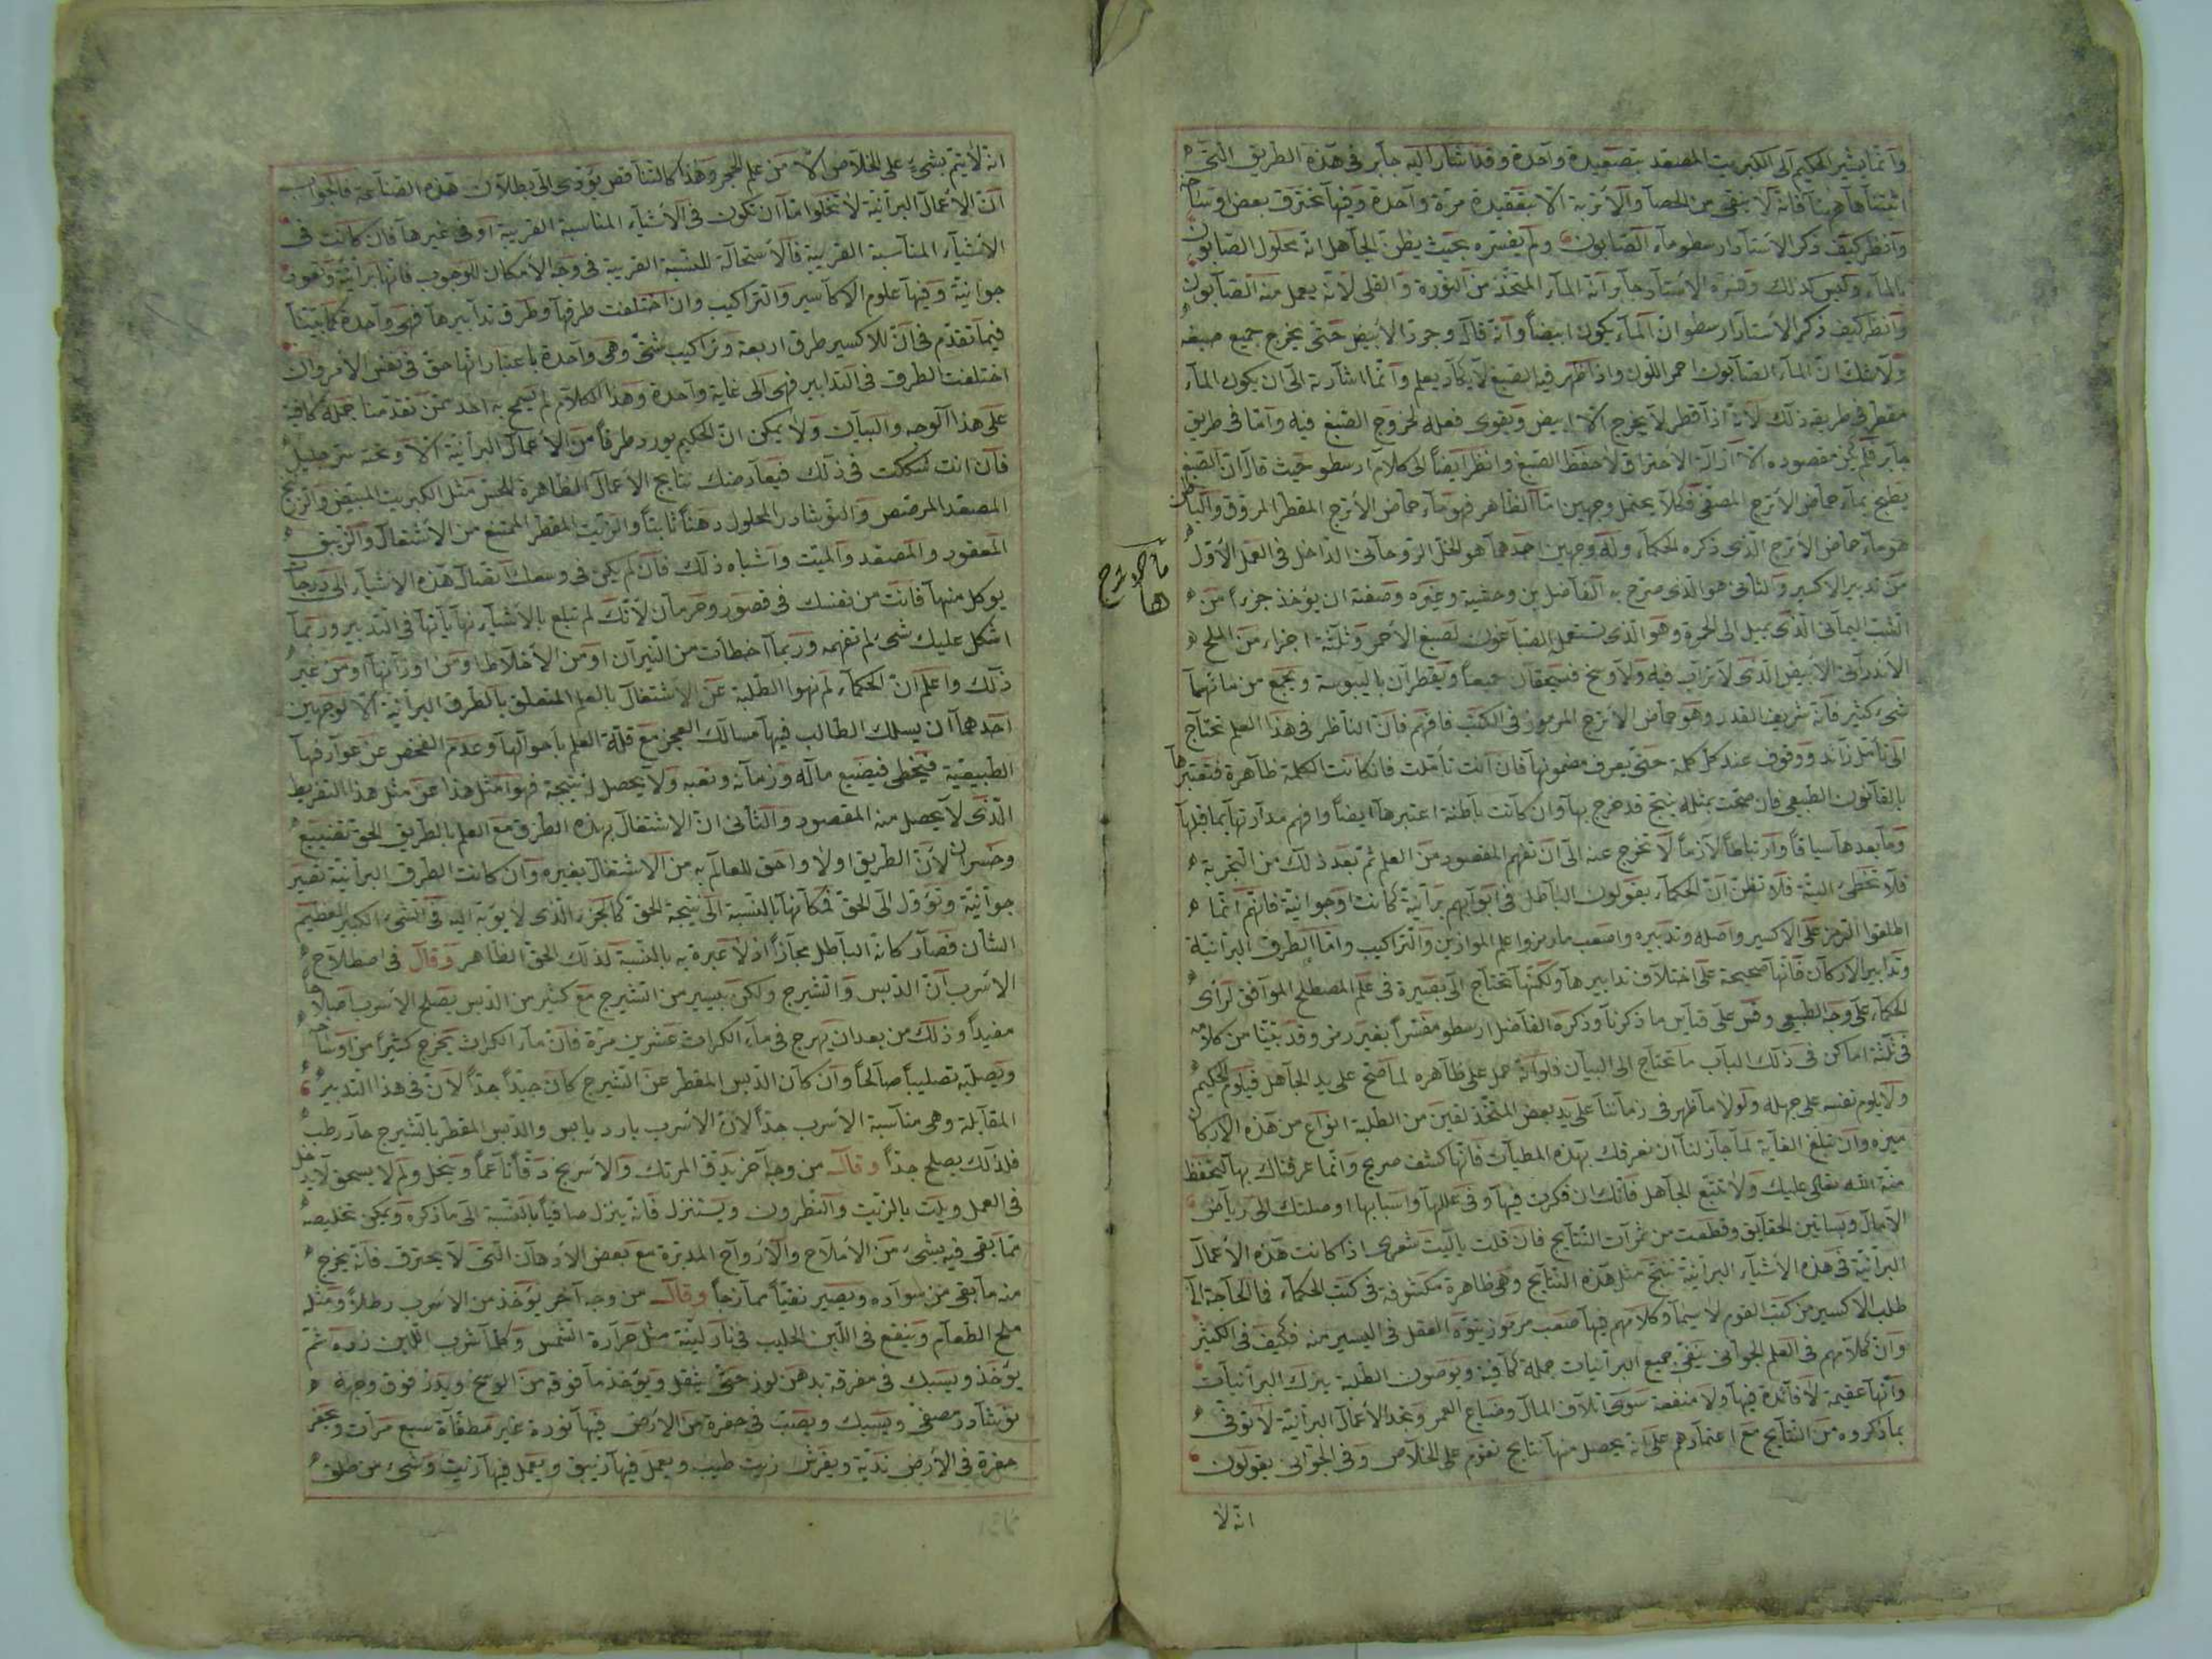 وانما يشير الحكيم الى الكبريت المصعد بتصعيدة واحدة وقد اشار اليه جابر فى هذه الطريق التى
اثبتناها ههنا فانه لا ينقى من الحصا والأتربة الا بتقفيدة مرة واحدة وفيها تحترق بعض اوساخه
وانظر كيف ذكر الأستاد ارسطو ماء الصابون ولم يفسره بحيث يظن الجاهل انه محلول الصابون
بالماء وليس كذلك وفسره الأستاد جابر انه الماء المتخذ من النورة والقلى لانه يعمل منه الصابون
وانظر كيف ذكر الأستاد ارسطو ان الماء يكون ابيضا وانه قال وجرد الأبيض حتى يخرج جميع صبغه
ولا شك ان الماء الصابون احمر اللون واذا ظهر فيه الصبغ لا يكاد يعلم وانما اشارته الى ان يكون الماء
مقطر فى طريقه ذلك لانه اذا قطر لا يخرج الا ابيض ويقوى فعله لخروج الصبغ فيه واما فى طريق
جابر فلم يكن مقصوده الا ازالة الاحتراق لا حفظ الصبغ وانظر ايضا الى كلام ارسطو حيث قال ان الصبغ
يطبخ بماء حماض الأترج المصفى فكلا يحتمل وجهين اما الظاهر فهو ماء حماض الأترج المقطر المروق والباطن
هو ماء حماض الأترج الذى ذكره الحكماء وله وجهين احدهما هو الخل الروحانى الداخل فى العمل الأول
من تدبير الاكسير والثانى هو الذى صرح به الفاضل بن وحشية وغيره وصفته ان يؤخذ جزءا من
الشب اليمانى الذى يميل الى الحمرة وهو الذى تستعمله الصباغون لصبغ الأحمر وثلثة اجزاء من الملح
الأندرانى الأبيض الذى لا تراب فيه ولا وسخ فيسحقان جميعا ويقطران باليبوسة ويجمع من مائهما
شىء كثير فانه شريف القدر وهو حماض الأترج المرموز فى الكتب فافهم فان الناظر فى هذا العلم محتاج
الى تأمل زائد ووقوف عند كل كلمة حتى يعرف مضمونها فان انت تأملت فان كانت الكلمة ظاهرة فتعتبرها
بالقانون الطبيعى فان صحت بمثله ينتج قد خرج بها وان كانت باطنة اعتبرها ايضا وافهم مدارتها بما قبلها
وما بعدها سياقا وارتباطا لازما لا تخرج عنه الى ان تفهم المقصود من العلم ثم بعد ذلك من التجربة
فلا تخطىء البتة فلا تظن ان الحكماء يقولون الباطل فى ابوابهم برانية كانت او جوانية فانهم انما
اطلقوا الرمز على الاكسير واصله وتدبيره واصعب ما رمزوا علم الموازين والتراكيب واما الطرق البرانية
وتدابير الاركان فانها صحيحة على اختلاف تدابيرها ولكنها تحتاج الى بصيرة فى علم المصطلح الموافق لرأى
الحكماء على وجه الطبيعى وقس على قياس ما ذكرنا وذكره الفاضل ارسطو مفسرا بغير رمز وقد بينا من كلامه
فى ثلثة اماكن فى ذلك الباب ما تحتاج الى البيان فلو انه حمل على ظاهره لما صح على يد الجاهل فيلوم الحكيم
ولا يلوم نفسه على جهله ولولا ما ظهر فى زماننا على يد بعض المتخذلقين من الطلبة انواع من هذه الاركان
ميزه وان تبلغ الغاية لما جاز لنا ان نعرفك بهذه المطيات فانها كشف صريح وانما عرفناك بها لتحفظ
منة الله تعالى عليك ولا تتبع الجاهل فانك ان فكرت فيها وفى عللها واسبابها اوصلتك الى رياض
الآمال وبساتين الحقايق وقطعت من ثمرات النتايج فان قلت ياليت شعرى اذا كانت هذه الأعمال
البرانية فى هذه الأشياء البرانية ينتج مثل هذه النتايج وهى ظاهرة مكشوفة فى كتب الحكماء فما الحاجة الى
طلب الاكسير من كتب القوم لا سيما وكلامهم فيها صعب مرموز يتوه العقل فى اليسير منه فكيف فى الكثير
وان كلامهم فى العلم الجوانى ينفى جميع البرانيات جملة كافية ويوصون الطلبة بترك البرانيات
وانها عقيمة لا فائدة فيها ولا منفعة سوى اتلاف المال وضياع العمر وتجد الأعمال البرانية لا توفى
بما ذكروه من النتايج مع اعتمادهم على انه يحصل منها نتايج تقوم على الخلاص وفى الجوانى يقولون
انه لا
انه لا يتم بشىء على الخلاص الا من علم الحجر وهذا كالتناقض يؤدى الى بطلان هذه الصناعة فالجواب
ان الأعمال البرانية لا تخلوا اما ان تكون فى الأشياء المناسبة القريبة او فى غيرها فان كانت فى
الأشياء المناسبة القريبة فالأستحالة للنسبة القريبة فى وجه الأمكان للوجوب فانها برانية وتعود
جوانية وفيها علوم الاكاسير والتراكيب وان اختلفت طرقها وطرق تدابيرها فهى واحدة كما بينا
فيما تقدم فى ان للاكسير طرق اربعة وتراكيب شتى وهى واحدة باعتبار انها حق فى نفس الأمر وان
اختلفت الطرق فى التدابير فهى الى غاية واحدة وهذا الكلام لم يسمح به احد ممن تقدمنا جملة كافية
على هذا الوجه والبيان ولا يمكن ان الحكيم يورد طرفا من الأعمال البرانية الا وتحته سر جليل
فان انت شككت فى ذلك فيعارضك نتايج الأعمال الظاهرة للحس مثل الكبريت المبيض والزرنيخ
المصعد المرصص والنوشادر المحلول دهنا ثابتا والزيت المقطر الممتنع من الأشتعال والزيبق
المعقود والمصعد والميت واشباه ذلك فان لم يكن فى وسعك ايصال هذه الأشياء الى درجات
يوكل منها فانت من نفسك فى قصور وحرمان لانك لم تبلغ بالأشياء نهاياتها فى التدبير وربما
اشكل عليك شىء لم تفهمه وربما اخطأت من النيران او من الأخلاط او من اوزانها او من غير
ذلك واعلم ان الحكماء لم نهوا الطلبة عن الاشتغال بالعلم المتعلق بالطرق البرانية الا لوجهين
احدهما ان يسلك الطالب فيها مسالك العجز مع قلة العلم باحوالها وعدم الفحص عن عوارفها
الطبيعية فيخطى فيضيع ماله وزمانه وتعبه ولا يحصل له نتيجة فهوا مثل هذا عن مثل هذا التفريط
الذى لا يحصل منه المقصود والثانى ان الاشتغال بهذه الطرق مع العلم بالطريق الحق تضييع
وخسران لأن الطريق اولا واحق للعالم به من الاشتغال بغيره وان كانت الطرق البرانية تصير
جوانية وتؤول الى الحق فكانها بالنسبة الى نتيجة الحق كالجزء الذى لا يؤبه اليه فى الشىء الكبير العظيم
الشأن فصار كانه الباطل مجازا اذ لا عبرة به بالنسبة لذلك الحق الظاهر وقال فى اصطلاح
الأسرب ان الدبس والشيرج ولكن بيسير من الشيرج مع كثير من الدبس يصلح الأسرب اصلاحا
مفيدا وذلك من بعد ان يهرج فى ماء الكراث عشرين مرة فان ماء الكراث يخرج كثيرا من اوساخه
ويصلبه تصليبا صالحا وان كان الدبس المقطر عن الشيرج كان جيدا جدا لان فى هذا التدبير
المقابلة وهى مناسبة الأسرب جدا لان الأسرب بارد يابس والدبس المقطر بالشيرج حار رطب
فلذلك يصلح جدا وقال من وجه آخر يدق المرتك والأسريج دقا ناعما وينخل ولم لا يسحق لا يدخل
فى العمل ويلت بالزيت والنطرون ويستنزل فانه ينزل صافيا بالنسبة الى ما ذكره ويمكن تخليصه
مما بقى فيه بشىء من الأملاح والأرواح المدبرة مع بعض الأدهان التى لا يحترق فانه يخرج
منه ما بقى من سواده ويصير نقيا ممازجا وقال من وجه آخر يؤخذ من الاسرب رطلا ومثله
ملح الطعام وينقع فى اللبن الحليب فى نار لينة مثل حرارة الشمس وكلما شرب اللبن زده ثم
يؤخذ ويسبك فى مغرفة بدهن لوز حتى ينقل ويؤخذ ما فوقه من الوسخ ويذر فوق وجهه
نوشادر مصفى ويسبك ويصب فى حفرة من الارض فيها نورة غير مطفأة سبع مرات ويحفر
حفرة فى الأرض ندية ويفرش زيت طيب ويعمل فيها زيبق ويعمل فيها زنيت وشىء من طلق